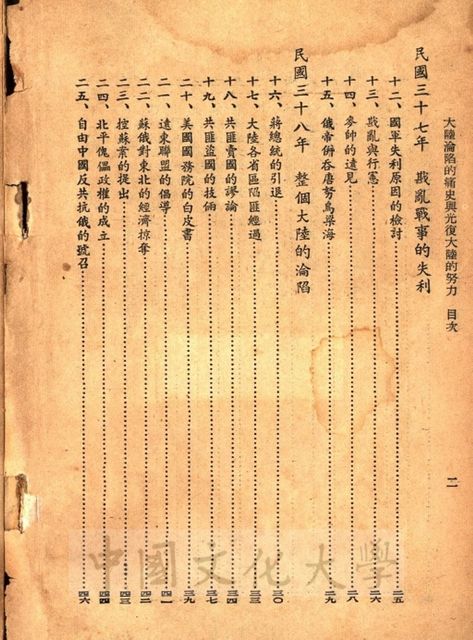 大陸淪陷的痛史與光復大陸的努力 目次 二
民國三十七年 戡亂戰事的失利
十二、國軍失利原因的檢討 二五
十三、戡亂與行憲 二六
十四、麥帥的遠見 二八
十五、俄帝併吞唐努烏梁海 二九
民國三十八年 整個大陸的淪陷
十六、蔣總統的引退 三〇
十七、大陸各省區陷匪經過 三三
十八、共匪賣國的謬論 三四
十九、共匪盜國的技倆 三七
二十、美國國務院的白皮書 三九
二一、遠東聯盟的倡導 四一
二二、蘇俄對東北的經濟掠奪 四二
二三、控蘇案的提出 四三
二四、北平傀儡政權的成立 四四
二五、自由中國反共抗俄的號召 四六
中國文化大學